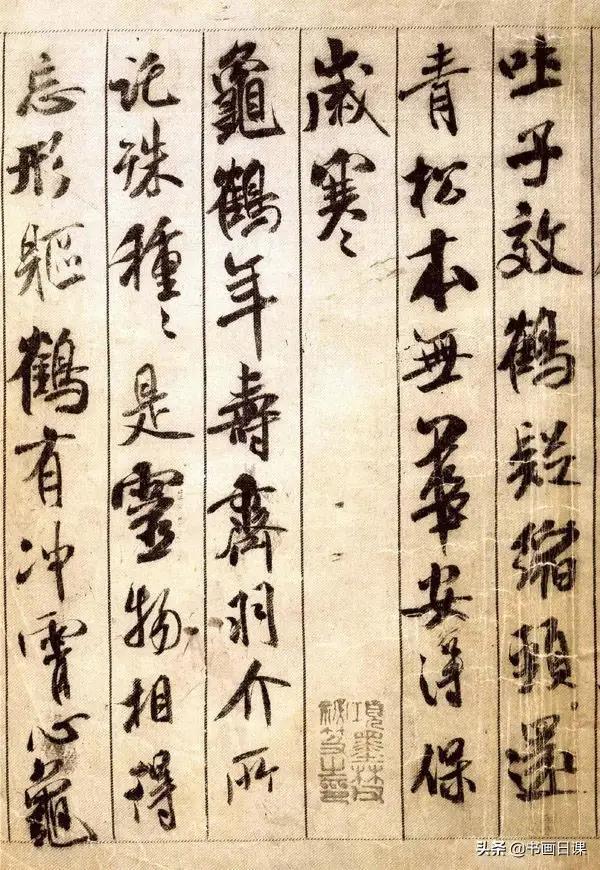 吐子效鶴疑縮頸還
青松本無華安得保
歲寒
龜鶴年壽齊羽介所
託殊種〻是靈物相得
忘形軀鶴有冲霄心龜
項墨林父
祕笈之印
头条 @书画日课